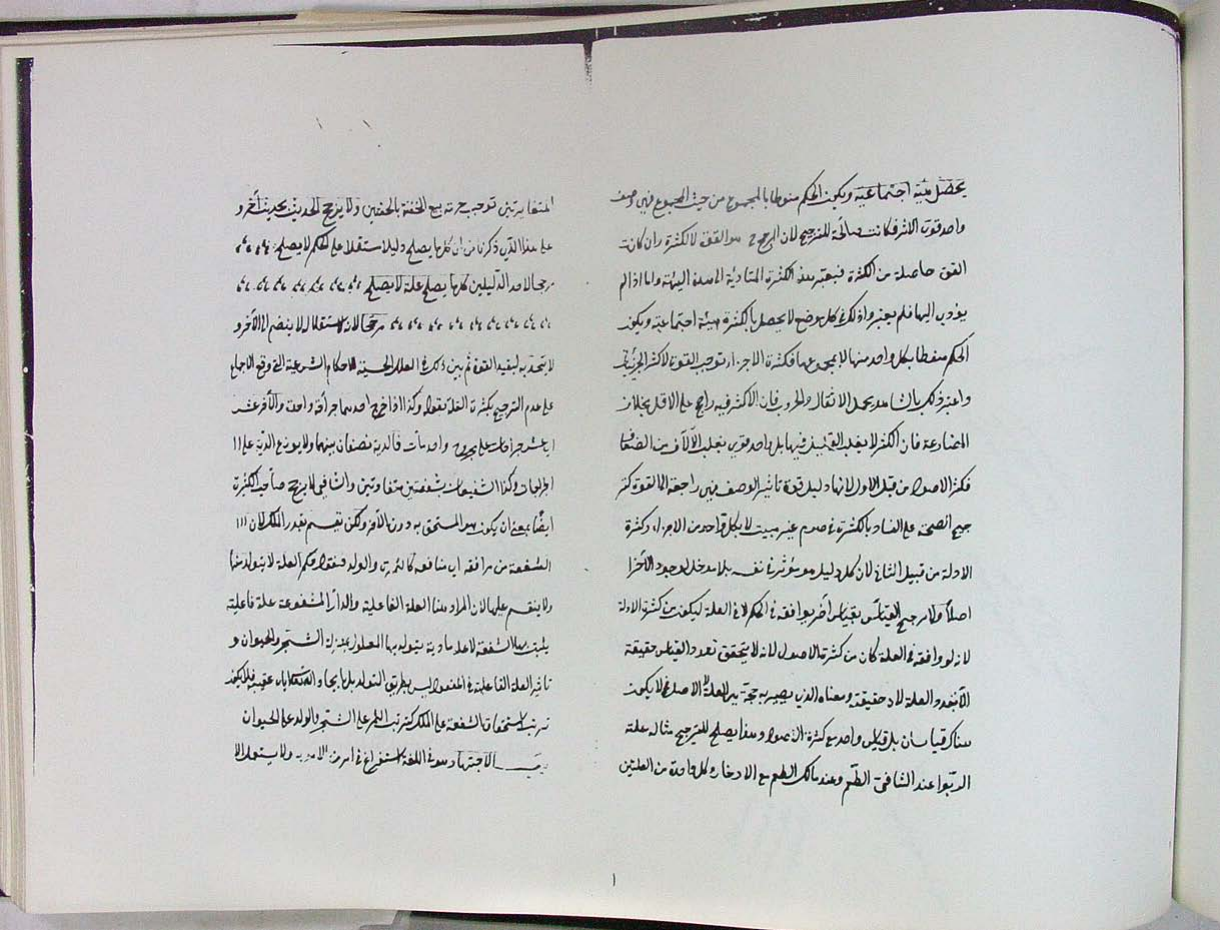 يحصل هيئة اجتماعية ويكون الحكم منوطا بالمجموع من حيث المجموع فهي وصف
واحد قوى الاثر فكانت صالحة للترجيح لان المرجح هو القوة لا الكثرة وان كانت
القوة حاصلة من الكثرة فيعتبر هذه الكثرة المتادية الى هذه الهيئة واما اذا لم
يؤد اليها فلم يعتبر وذلك في كل موضع لا يحصل بالكثرة هيئة اجتماعية ويكون
الحكم منوطا بكل واحد منها لا بمجموعها فكثرة الاجزاء توجب القوة لاكثر الجزئيات
واعتبر ذلك بالشاهد بحمل الاثقال والحروب فان الاكثر فيه راجح على الاقل بخلاف
المصارعة فان الكثير لا يغلب القليل فيها بل واحد قوى يغلب الآلاف من الضعفا
فكثرة الاصول من قبيل الاول لانها دليل قوة تاثير الوصف فهي راجعة الى القوة كتر
جيح الصحة على الفساد بالكثرة في صوم غير مبيت لا بكل واحد من الاجزاء وكثرة
الادلة من قبيل الثاني لان كل دليل هو مؤثر في نفسه بلا مدخل لوجود الآخر
اصلا ولا ترجيح القياس بقياس آخر يوافقه في الحكم لا في العلة ليكون من كثرة الادلة
لانه لو وافقه في العلة كان من كثرة الاصول لانه لا يتحقق تعدد القياس حقيقة
الا بتعدد العلة لان حقيقته ومعناه الذي يصير به حجة هو العلة لا الاصل فلا يكون
هناك قياسان بل قياس واحد مع كثرة الاصول وهذا يصلح للترجيح مثاله علة
الربوا عند الشافعي الطعم وعند مالك الطعم مع الادخار وكل واحدة من العلتين
المتغايرتين توجب حرمة بيع الحفنة بالحفنتين ولا يرجح الحديث بحديث آخر و
على هذا الذي ذكرنا من ان كل ما يصلح دليلا مستقلا على الحكم لا يصلح
مرجحا لاحد الدليلين كل ما يصلح علة لا يصلح
مرجحا لانه لاستقلاله لا ينضم الى الآخر و
لا يتحد به ليفيد القوة ثم بين ذلك في العلل الحسية للاحكام الشرعية التي وقع الاجماع
على عدم الترجيح بكثرة العلة بقوله وكذا اذا جرح احدهما جراحة واحدة والآخر عشر
جراحات على مجروح واحد مات فالدية نصفان بينهما ولا يوزع الدية على ا
لجراحات وكذا الشفيعان بشقصين متفاوتين والشافعي لا يرجح صاحب الكثرة
ايضا بمعنى ان يكون هو المستحق به دون الآخر ولكن تقسم بقدر الملك لان
الشفعة من مرافقه اي منافعه كالثمرة والولد فنقول حكم العلة لا يتولد منها
ولا ينقسم عليها لان المراد هنا العلة الفاعلية والدار المشفوعة علة فاعلية
يثبت بها الشفعة لا علة مادية يتولد بها المعلول بمنزلة الشجر والحيوان و
تاثير العلة الفاعلية في المعلول ليس بطريق التولد بل بايجاد الله تعالى عقيبه فلا يكون
ترتب استحقاق الشفعة على الملك كترتب الثمر على الشجر والولد على الحيوان
الاجتهاد هو في اللغة استفراغ في امر من الامور ولا يستعمل الا